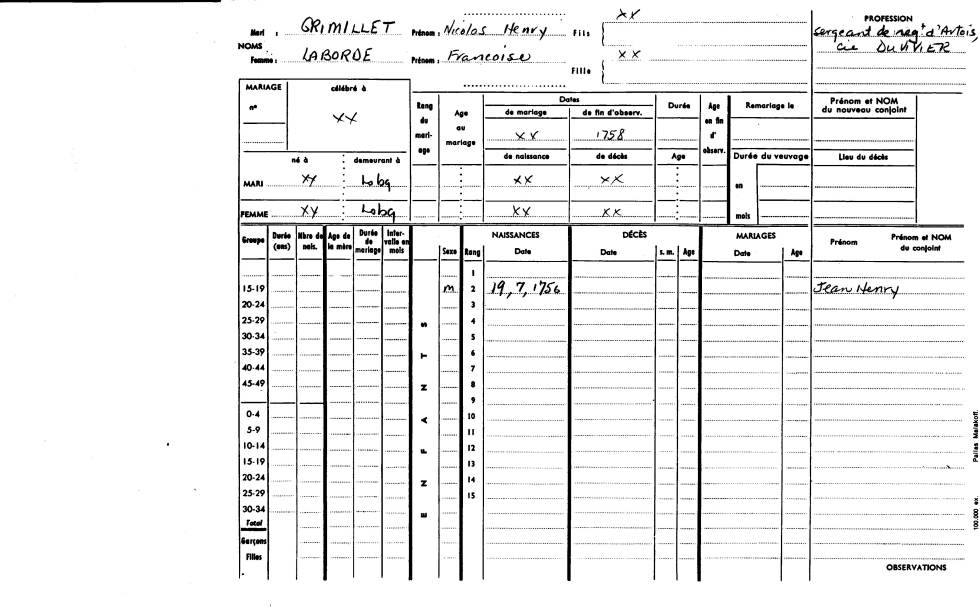 Mari : GRIMILLET Prénom : Nicolas Henry Fils XX
NOMS
Femme : LABORDE Prénom : Francoise Fille XX
PROFESSION
sergeant de regt d'Artois,
cie DUVIVIER
MARIAGE célébré à
n° XX
né à demeurant à
MARI XX Lobg
FEMME XX Lobg
Rang du mari-age
Age au mariage
Dates
de mariage de fin d'observ.
XX 1758
de naissance de décès
XX XX
XX XX
Durée
Age
Age en fin d'observ.
Remariage le
Durée du veuvage
en
mois
Prénom et NOM
du nouveau conjoint
Lieu du décès
Groupe Durée (ans) Nbre de nais. Age de la mère Durée de mariage Inter-valle en mois Sexe Rang NAISSANCES Date DÉCÈS Date s. m. Age MARIAGES Date Age Prénom Prénom et NOM du conjoint
ENFANTS
1
15-19 M 2 19, 7, 1756 Jean Henry
20-24 3
25-29 4
30-34 5
35-39 6
40-44 7
45-49 8
9
0-4 10
5-9 11
10-14 12
15-19 13
20-24 14
25-29 15
30-34
Total
Garçons
Filles
OBSERVATIONS
100.000 ex. Pallas Malakoff.